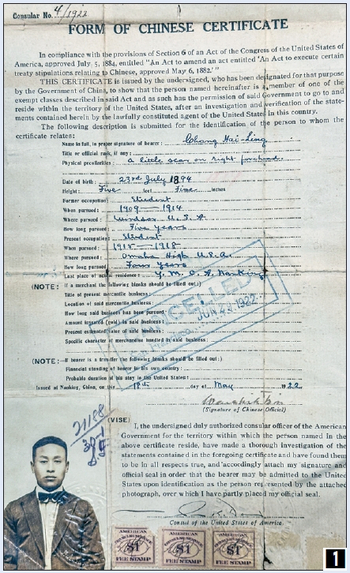 Consular No. 4/1922
FORM OF CHINESE CERTIFICATE
In compliance with the provisions of Section 6 of an Act of the Congress of the United States of
America, approved July 5, 1884, entitled "An Act to amend an act entitled 'An Act to execute certain
treaty stipulations relating to Chinese, approved May 6, 1882.'"
THIS CERTIFICATE is issued by the undersigned, who has been designated for that purpose
by the Government of China, to show that the person named hereinafter is a member of one of the
exempt classes described in said Act and as such has the permission of said Government to go to and
reside within the territory of the United States, after an investigation and verification of the state-
ments contained herein by the lawfully constituted agent of the United States in this country.
The following description is submitted for the identification of the person to whom the
certificate relates:
Name in full, in proper signature of bearer: Chang Hai-Ling
Title or official rank, if any:
Physical peculiarities: a little scar on right forehead.
Date of birth: 23rd July 1894
Height: Five feet Five inches
Former occupation: Student
When pursued: 1909 - 1914
Where pursued: U.S.A
How long pursued: Five years
Present occupation: Student
When pursued: 1915 - 1918
Where pursued: Omaha High U.S.A.
How long pursued: Four years
Last place of actual residence: Y.M.C.A. Nanking
(NOTE: If a merchant the following blanks should be filled out:)
Title of present mercantile business:
Location of said mercantile business:
How long said business has been pursued:
Amount invested (gold) in said business:
Present estimated value of said business:
Specific character of merchandise handled in said business:
CANCELLED
JUN 1922
(NOTE: If bearer is a traveler the following blanks should be filled out:)
Financial standing of bearer in his own country:
Probable duration of his stay in the United States:
Issued at Nanking, China, on the 18th day of May 1922
(Signature of Chinese Official)
21188
(VISE)
I, the undersigned duly authorized consular officer of the American
Government for the territory within which the person named in the
above certificate resides, have made a thorough investigation of the
statements contained in the foregoing certificate and have found them
to be in all respects true, and accordingly attach my signature and
official seal in order that the bearer may be admitted to the United
States upon identification as the person represented by the attached
photograph, over which I have partly placed my official seal.
Consul of the United States of America.
AMERICAN
$1
FEE STAMP
AMERICAN
$1
FEE STAMP
$1
FEE STAMP
1